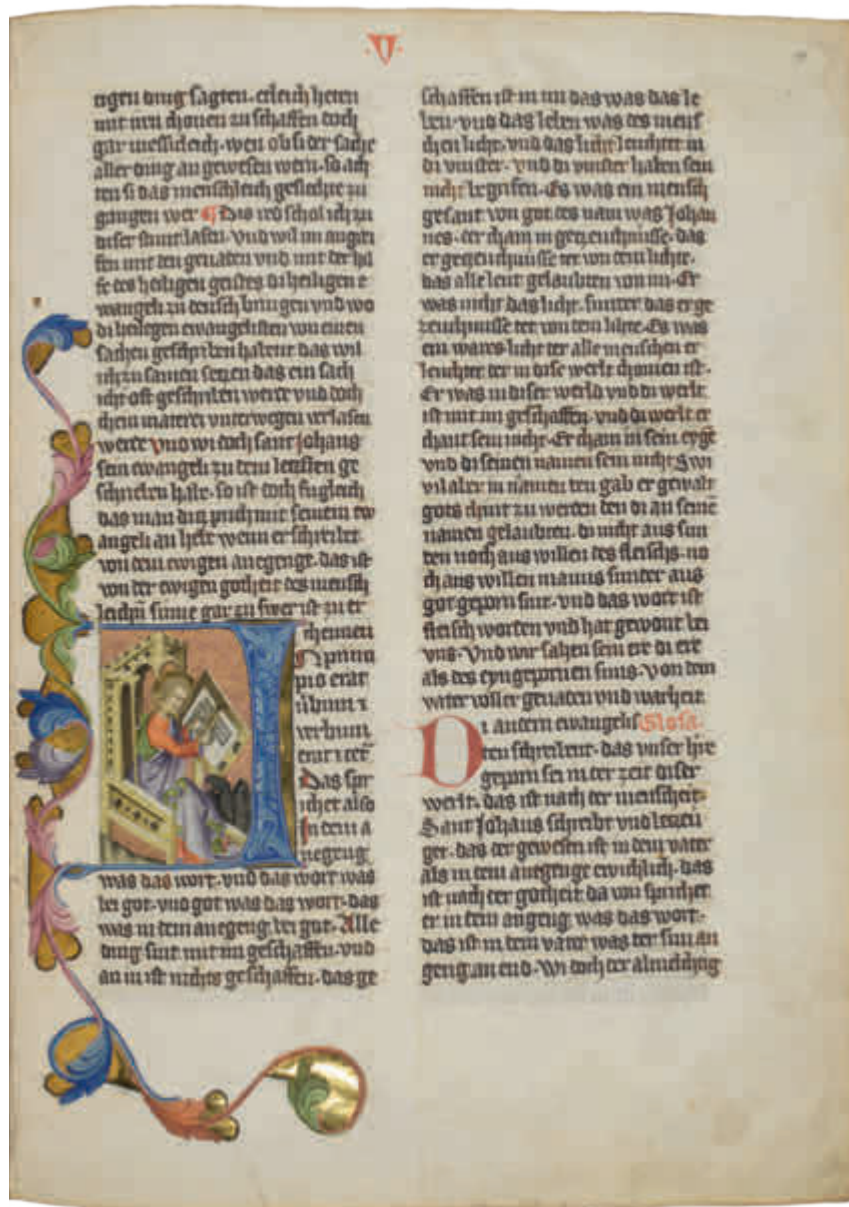 ·V·
eigen ding sagten. erleich heten
mit nen chonen zu schaffen doch
gar wessicleich. wen ob si der sache
aller ding an gewesen wern. so ach
ten si das menschleich geslechte zu
gangen wer Dis red schol ich zu
diser stunt lasen. Vnd wil im angrei
fen mit den genaden vnd mit der hil
fe des heiligen geistes di heiligen e
wangeli zu deusch bringen vnd wo
di heilegen ewangelisten von einen
sachen geschriben habent das wil
ich zu samen setzen das ein sach
icht oft geschriben werde vnd doch
chein materei vnterwegen verlasen
werde vnd wi doch sant Johans
sein ewangeli zu dem lecsten ge
schrieben habe. so ist doch fugleich
das man diz puch mit seinem ew
angeli an hebt wenn er schreibet
von dem ewigen anegenge. das ist
von der ewigen gotheit des mensch
leichn sinne gar zu swer ist zu er
chennen
In prin
pio erat
ũbum ⁊
verbum
erat ⁊ cet̃
Das spr
ichet also
In dem a
negeng
was das wort. vnd das wort was
bei got. vnd got was das wort. das
was in dem anegeng bei got. Alle
ding sint mit im geschaffen. vnd
an in ist nichts geschaffen. das ge
schaffen ist in im das was das le
ben. vnd das leben was des mens
chen licht. vnd das licht leuchtet in
di vinster. vnd di vinster haben sein
nicht begrifen. Es was ein mensch
gesant von got. des nam was Johan
nes. der cham in gezeuchnusse. das
er gezeuchnusse ter von dem lichte.
das alle leut gelaubten von im. Er
was nicht das licht. sunter das er ge
zeuchnusse ter von dem lihte. Es was
ein wares licht der alle menschen er
leuchtet der in dise werlt chomen ist.
Er was in diser werld vnd di werlt
ist mit im geschaffen. vnd di werlt er
chant sein nicht. Er cham in sein eygē
vnd di seinen namen sein nicht Swi
vil aber in namen den gab er gewalt
gots chint zu werden den di an seinē
namen gelaubten. di nicht aus sun
den noch aus willen des fleischs. no
ch aus willen mannes sunder aus
got geporn sint. vnd das wort ist
fleisch worden vnd hat gewont bei
vns. Vnd wir sahen sein ere di ere
als des eyngepornen suns. von dem
vater voller genaden vnd warheit
Di andern ewangelis Glosa.
ten schreibent. das vnser hre
geporn sei in der zeit diser
werlt. das ist nach der menscheit.
Sant Johans schreibt vnd bezeu
get. das der gewesen ist in dem vater
als in dem anegenge ewichlich. das
ist nach der gotheit da von sprichet
er in dem angeng was das wort.
das ist in dem vater was der sun an
geng an end. Wi doch der almechtig